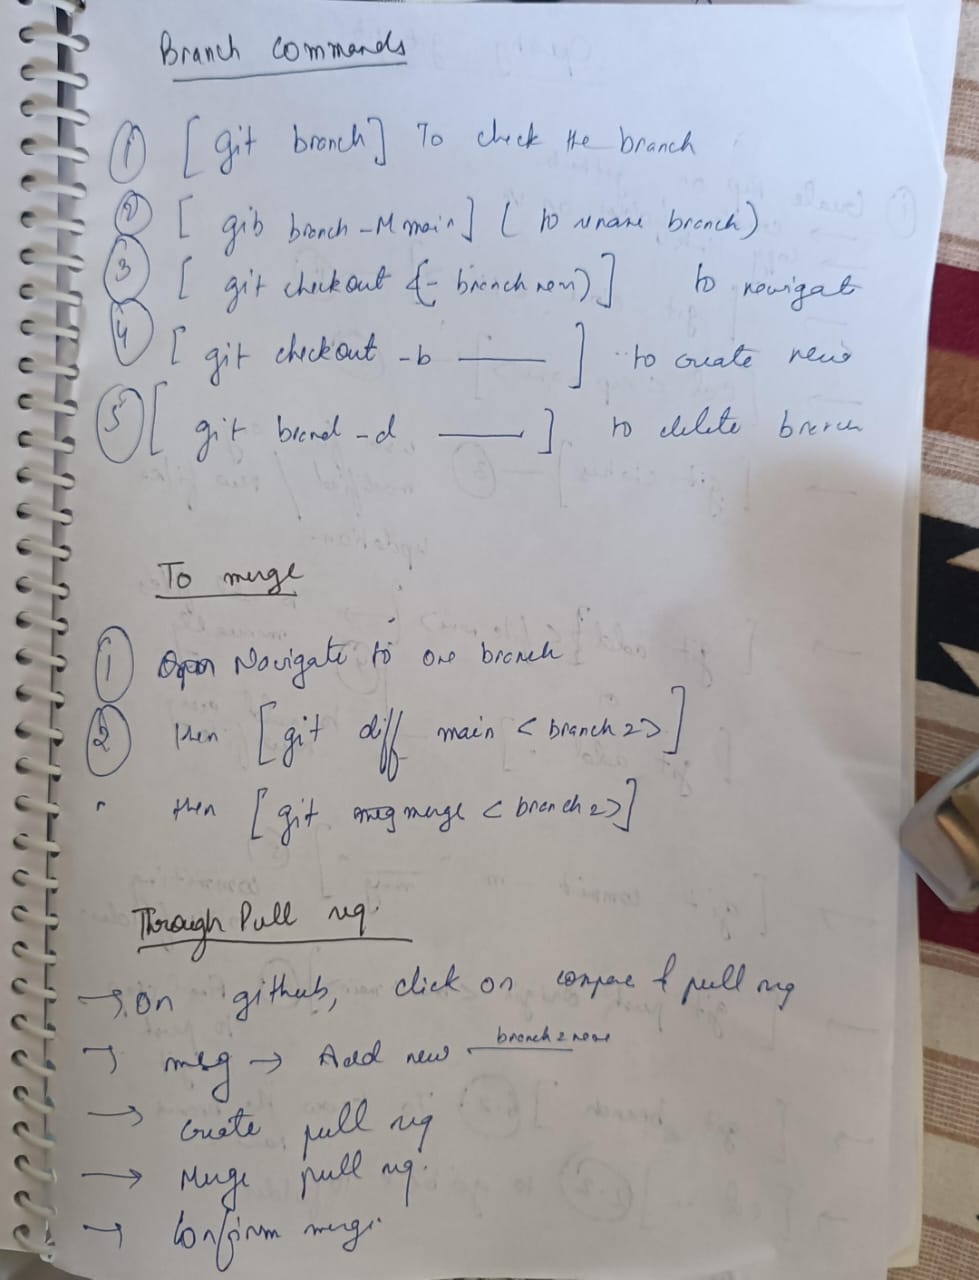 Branch Commands
① [ git branch ] To check the branch
② [ git branch -M main ] ( to rename branch )
③ [ git checkout {- branch nem) ] to navigat
④ [ git checkout -b ____ ] to create new
⑤ [ git brand -d ____ ] to delete branch
To merge
① Navigate to one branch
② then [ git diff main < branch 2 > ]
" then [ git merge < branch 2 > ]
Through Pull req.
→ On github, click on compare & pull req
→ msg → Add new branch 2 name
→ Create pull req
→ Merge pull req.
→ Confirm merge.